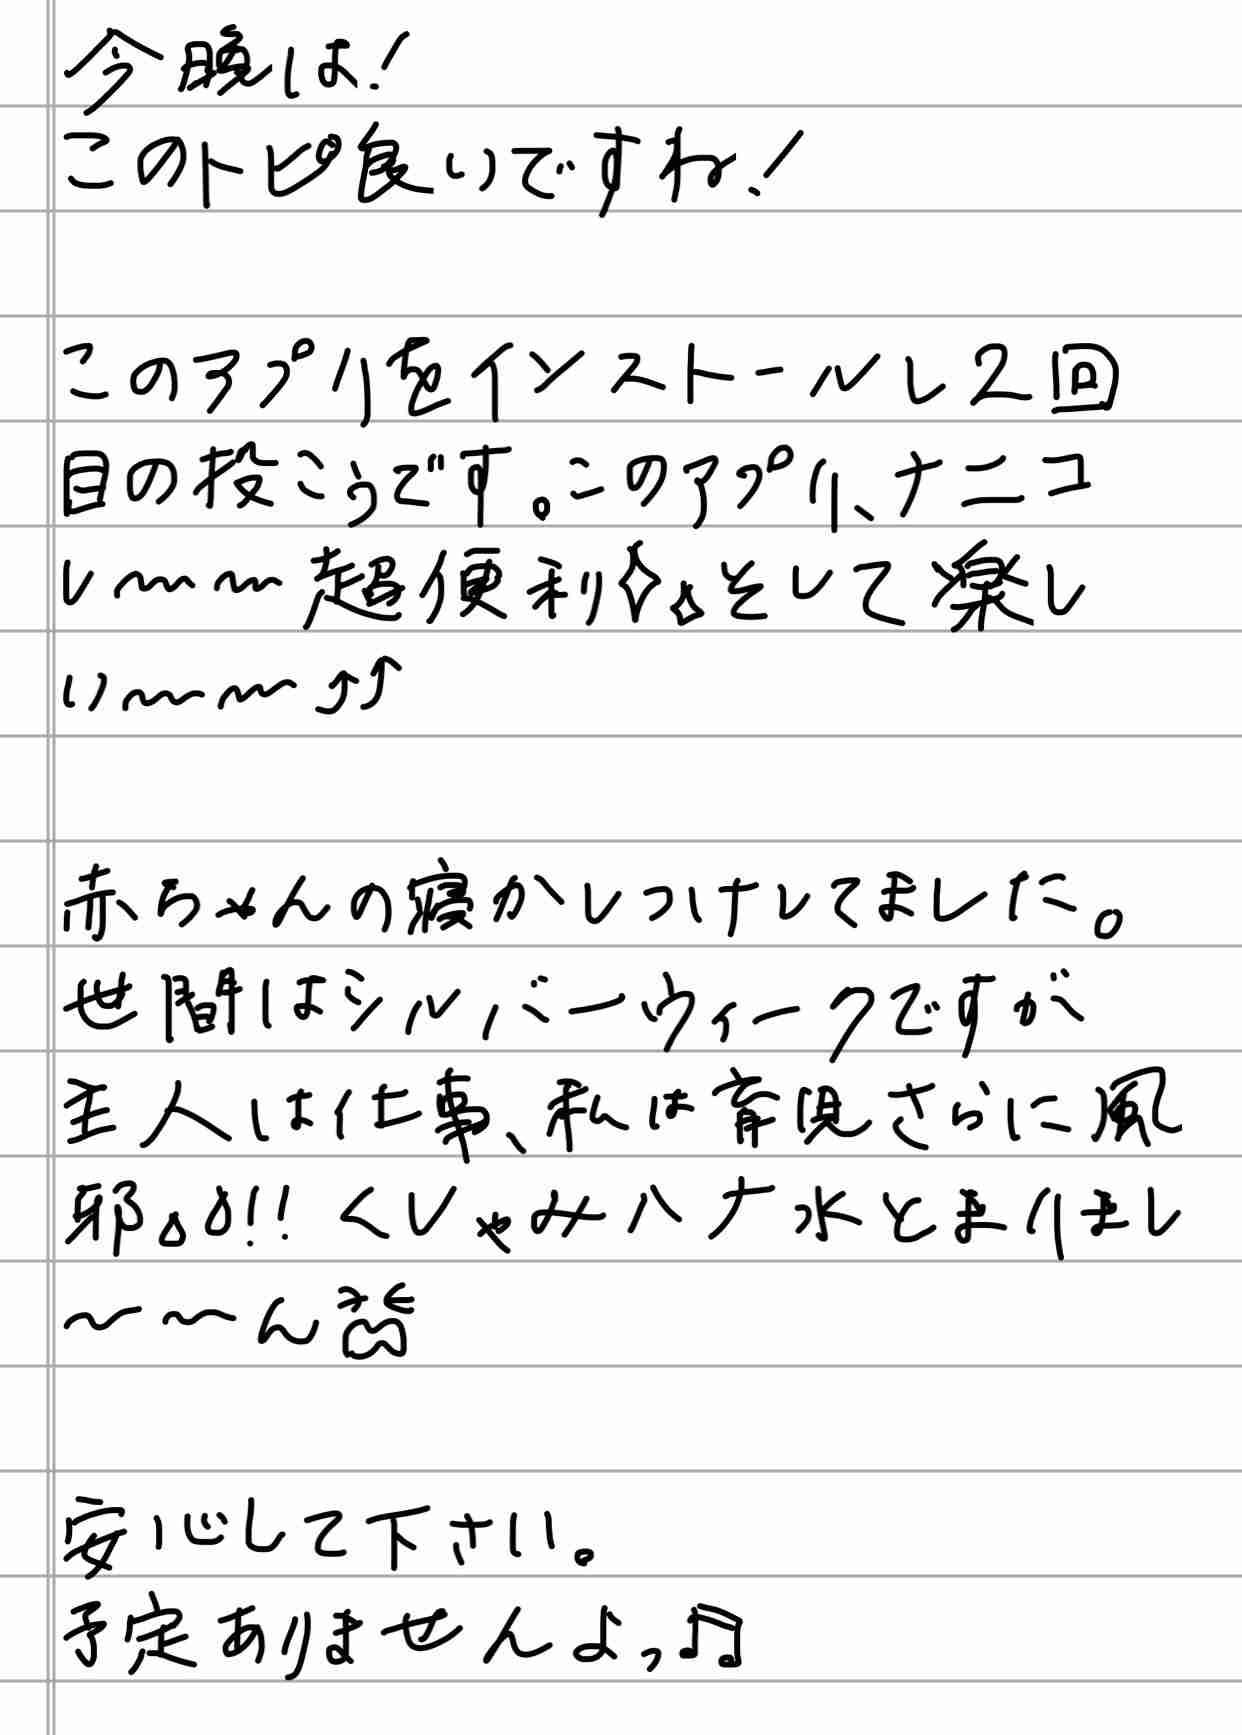 今晩は!
このトピ良いですね!
このアプリをインストールし2回
目の投こうです。このアプリ、ナニコ
レ〜〜超便利✧✧そして楽し
い〜〜⤴⤴
赤ちゃんの寝かしつけしてました。
世間はシルバーウィークですが
主人は仕事、私は育児さらに風
邪💧💧!! くしゃみハナ水とまりまし
〜〜ん
安心して下さい。
予定ありませんよっ♫